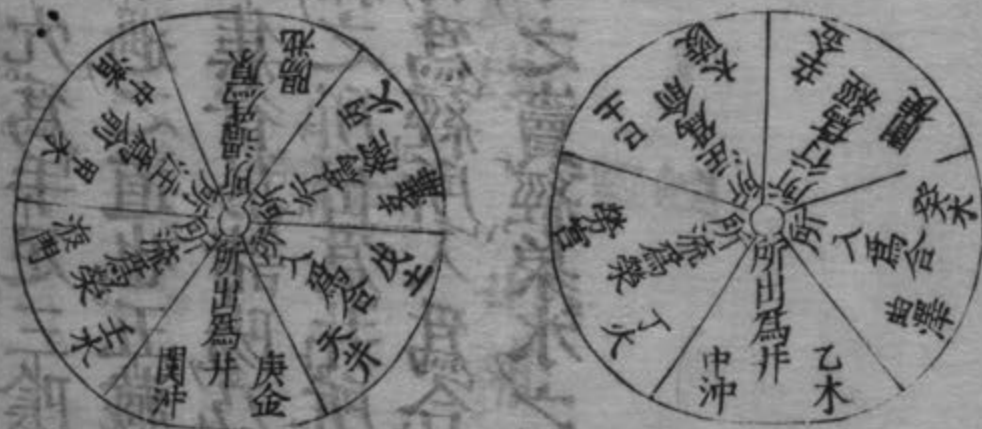 乙木
所出為井
中沖
丁火
所流為榮
勞宮
己土
所注為俞
大陵
辛金
所行為經
間使
癸水
所入為合
曲澤
庚金
所出為井
関沖
壬水
所流為榮
液門
甲木
所注為俞
中渚
所過為原
陽池
丙火
所行為經
戊土
所入為合
天井